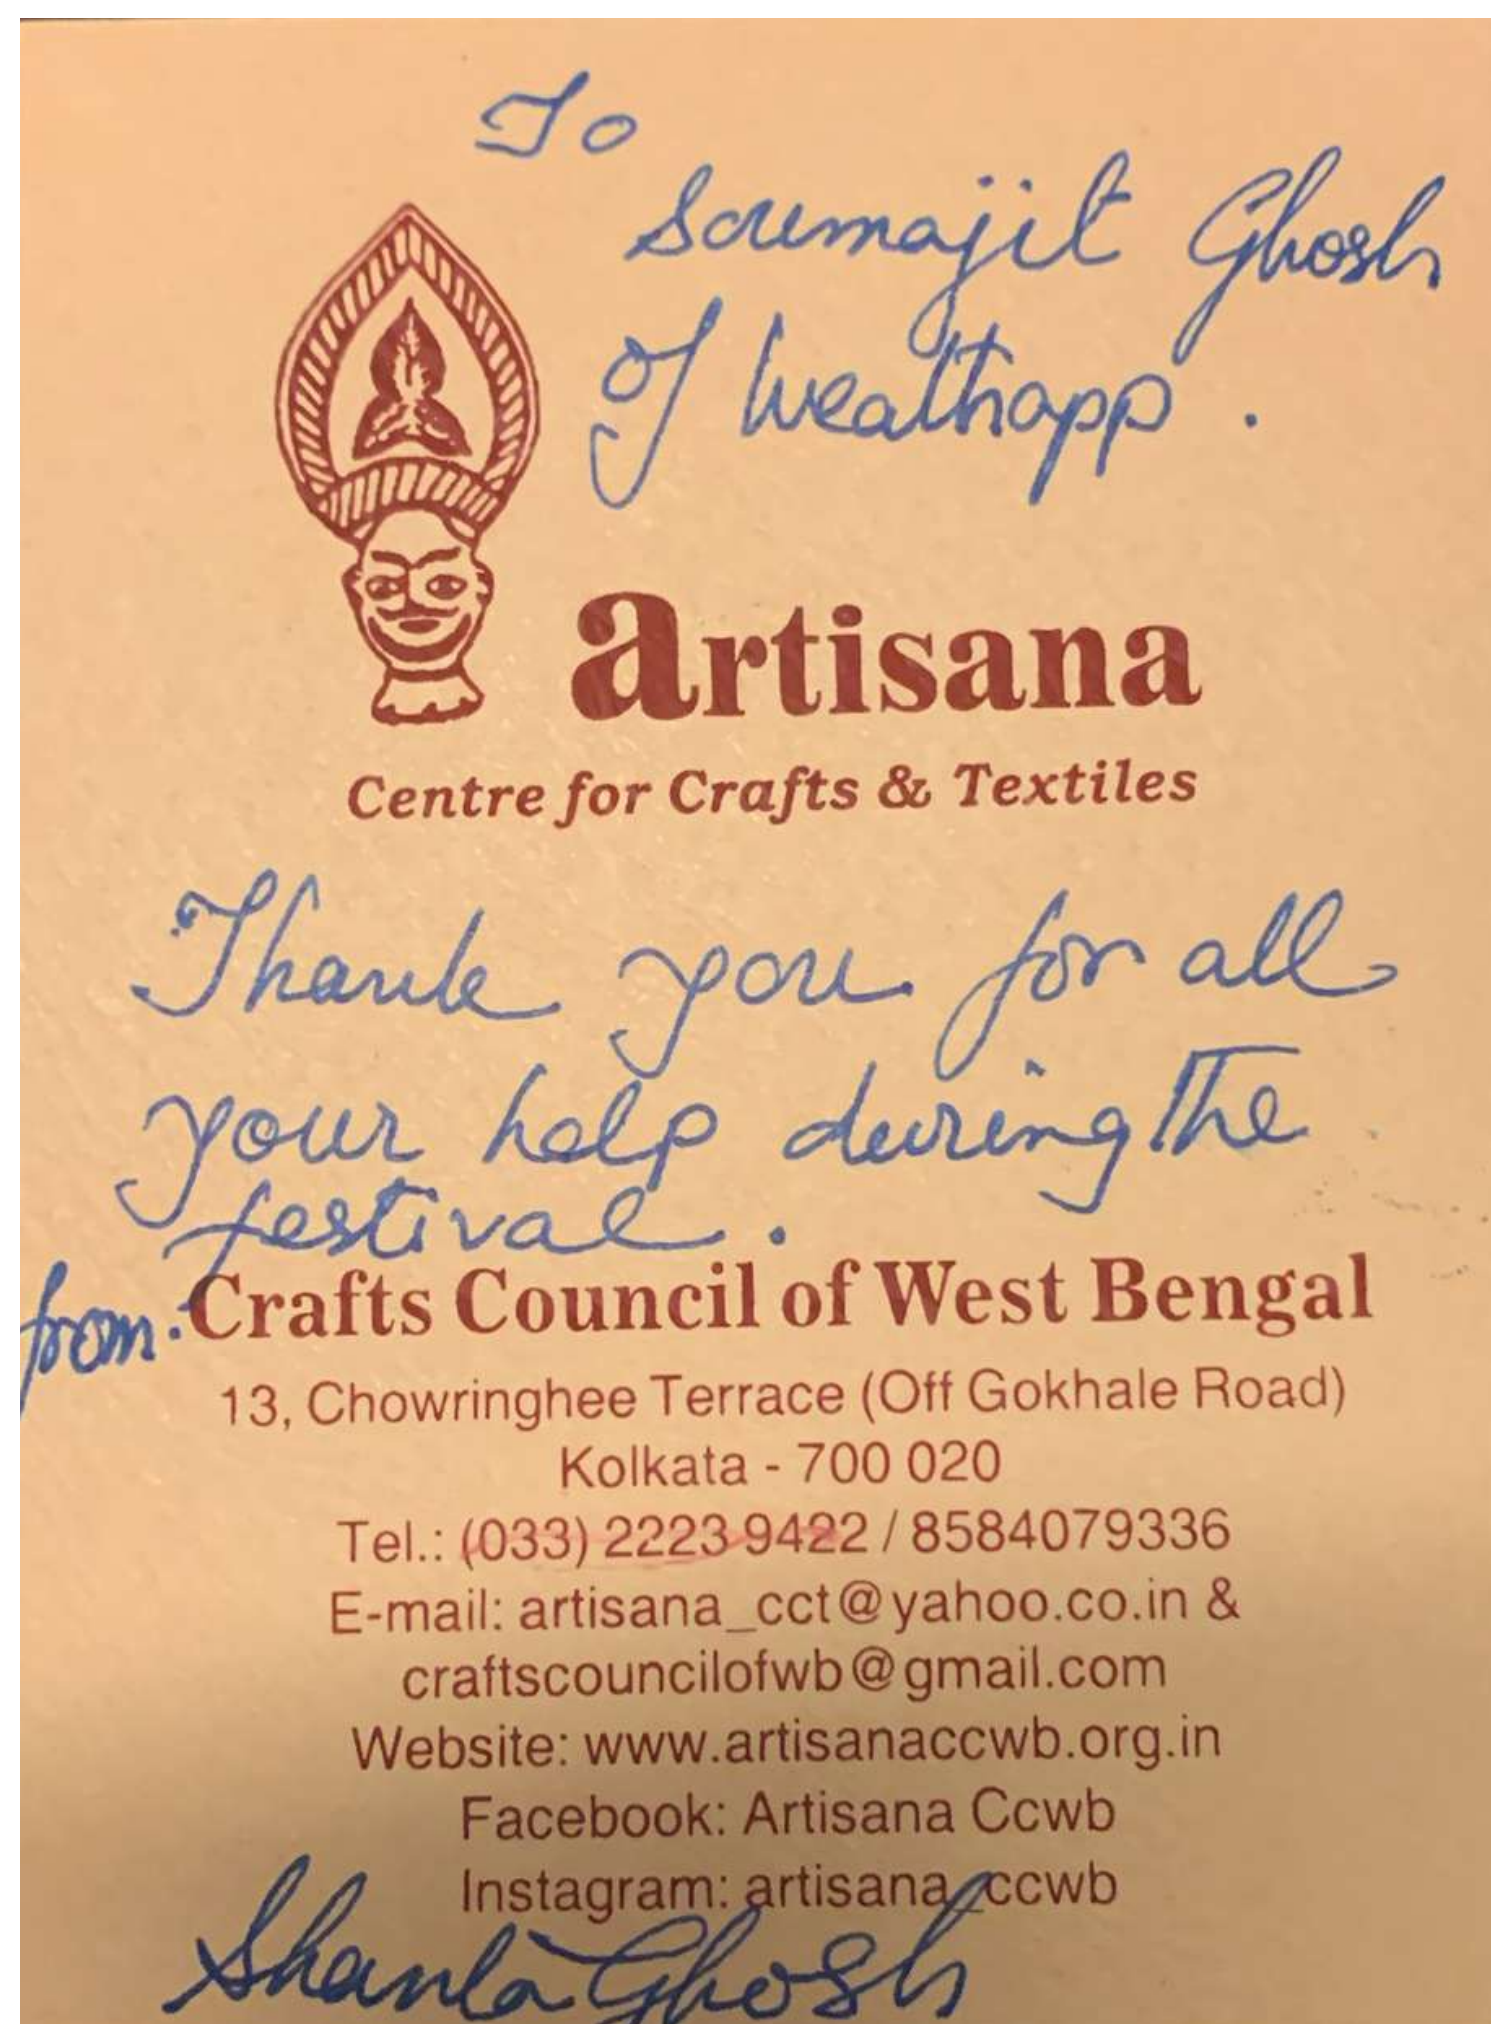 To
Soumajit Ghosh
of Wealthapp.
artisana
Centre for Crafts & Textiles
Thank you for all
your help during the
festival.
from: Crafts Council of West Bengal
13, Chowringhee Terrace (Off Gokhale Road)
Kolkata - 700 020
Tel.: (033) 2223 9422 / 8584079336
E-mail: artisana_cct@yahoo.co.in &
craftscouncilofwb@gmail.com
Website: www.artisanaccwb.org.in
Facebook: Artisana Ccwb
Instagram: artisana_ccwb
Shanta Ghosh